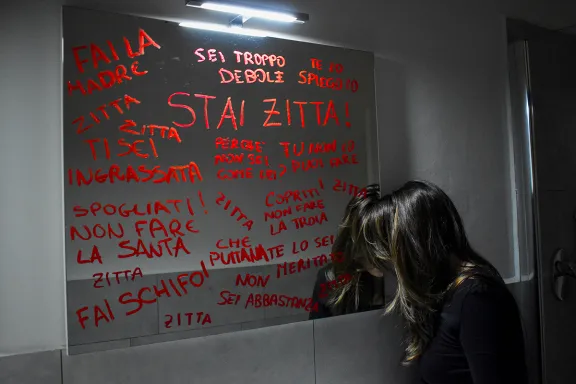 FAI LA
MADRE
ZITTA
ZITTA
TI SEI
INGRASSATA
SEI TROPPO
DEBOLE
TE LO
SPIEGATO
STAI ZITTA!
PERCHÈ
NON SEI
COME
TU NON LO
PUOI FARE
SPOGLIATI!
NON FARE
LA SANTA
ZITTA
FAI SCHIFO!
ZITTA
ZITTA
COPRITI!
NON FARE
LA TROIA
ZITTA
CHE
PUTTANA
TE LO SEI
MERITATA
NON
SEI ABBASTANZA